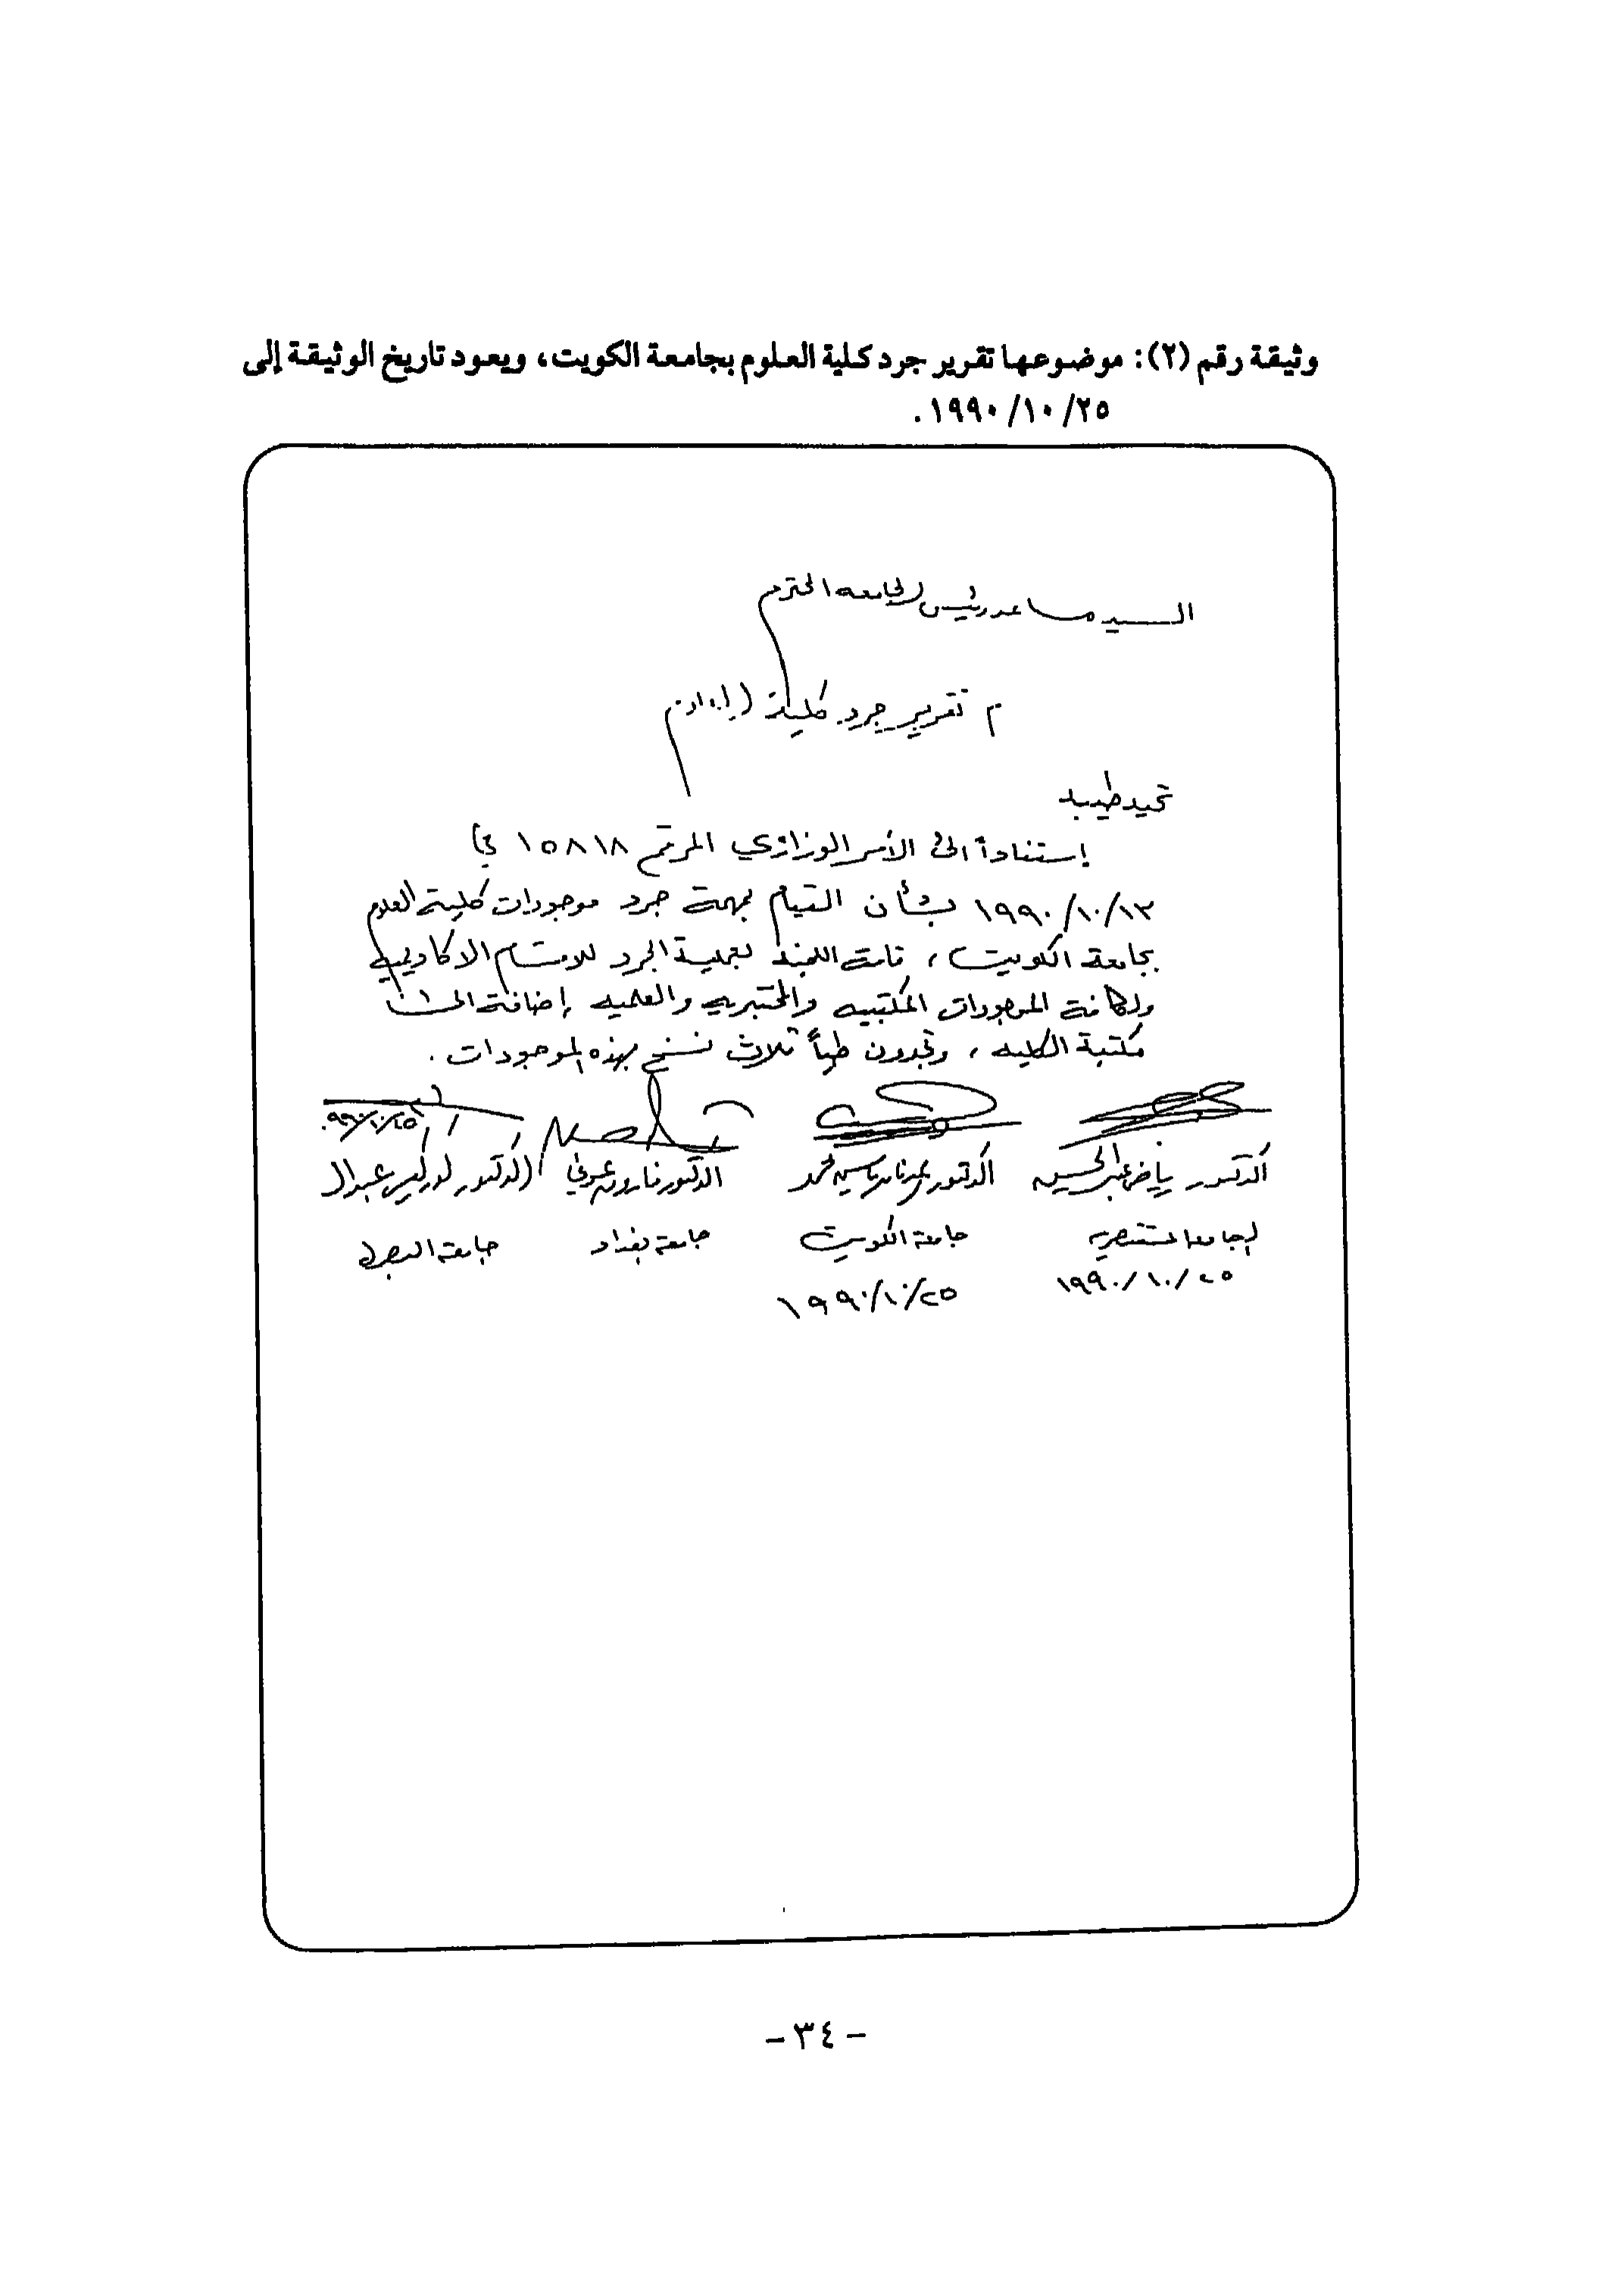 وثيقة رقم (٢): موضوعها تقرير جرد كلية العلوم بجامعة الكويت، ويعود تاريخ الوثيقة إلى
٢٥/١٠/١٩٩٠.
السيد مساعد رئيس الجامعه المحترم
م تقرير جرد كلية
تحيه طيبه
إستناداً الى الأمر الوزاري المرقم ١٥٨١٨ في
١٩٩٠/١٠/١٣ بشأن القيام بمهمة جرد موجودات كلية العلوم
بجامعة الكويت، قامت اللجنة بعملية الجرد للاقسام الاكاديميه
ولكافة الموجودات المكتبيه والمختبريه والعلميه إضافة الى
مكتبة الكليه، وتجدون طياً ثلاث نسخ بهذه الموجودات.
١٩٩٠/١٠/٢٥
الدكتور رياض عبد الحسين الدكتور ياسين محمد الدكتور فاروق عوني الدكتور
الجامعه المستنصريه جامعة الكويت جامعة بغداد جامعة البصره
١٩٩٠/١٠/٢٥ ١٩٩٠/١٠/٢٥
- ٣٤ -